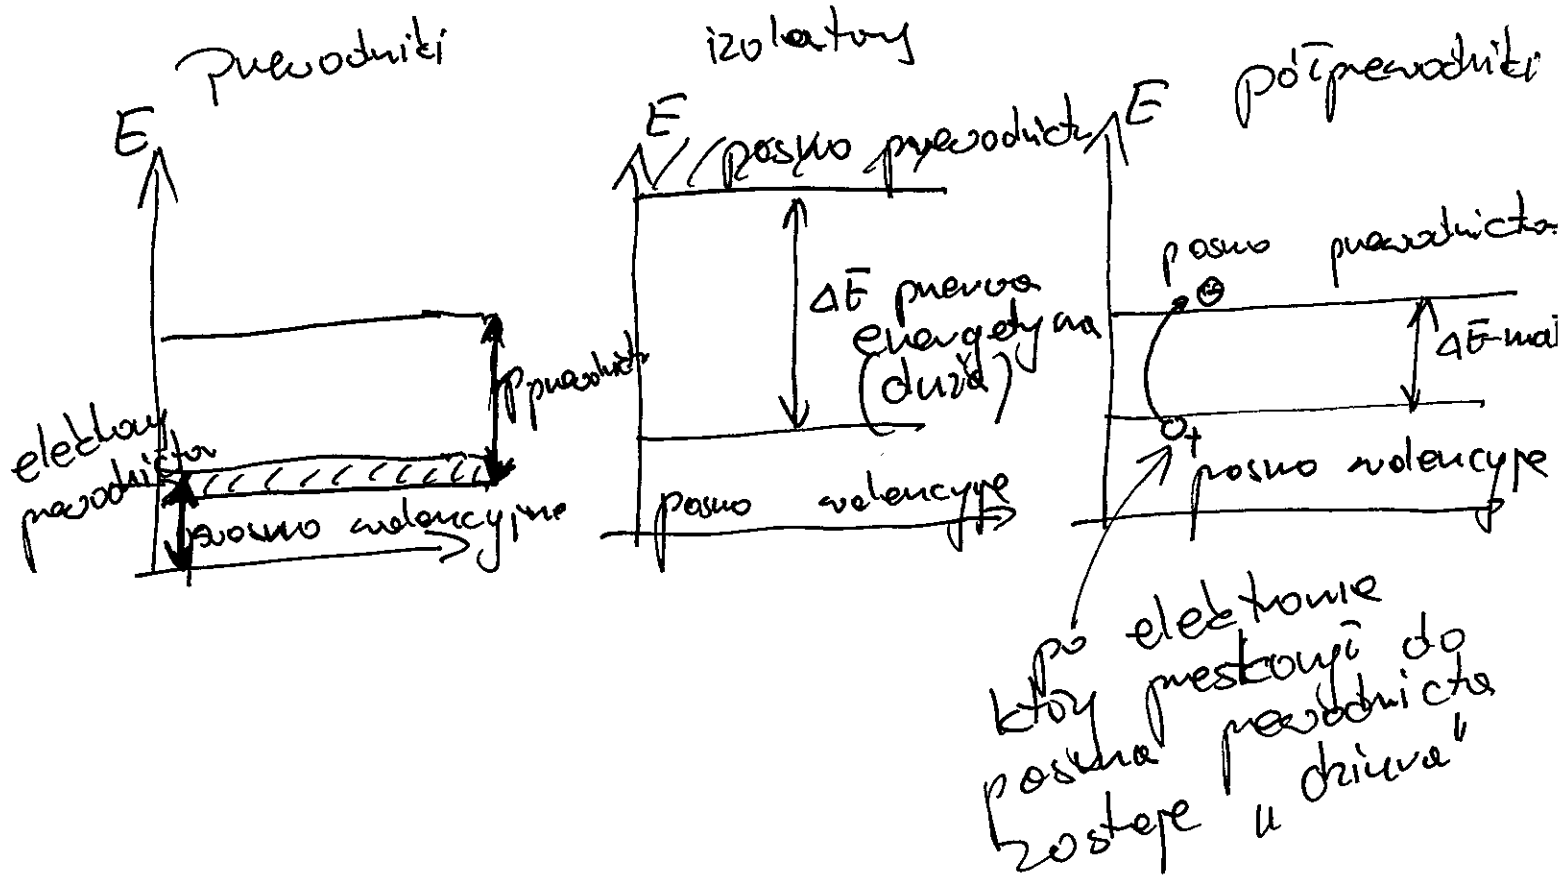 przewodniki
E
p. przewodnictwa
elektrony
przewodnictwa
pasmo walencyjne
izolatory
E
pasmo przewodnictw
ΔE przerwa
energetyczna
(duża)
pasmo walencyjne
półprzewodniki
E
pasmo przewodnictwa
ΔE-mał
+
pasmo walencyjne
po elektronie
który przeskoczył do
pasma przewodnictwa
zostaje "dziura"